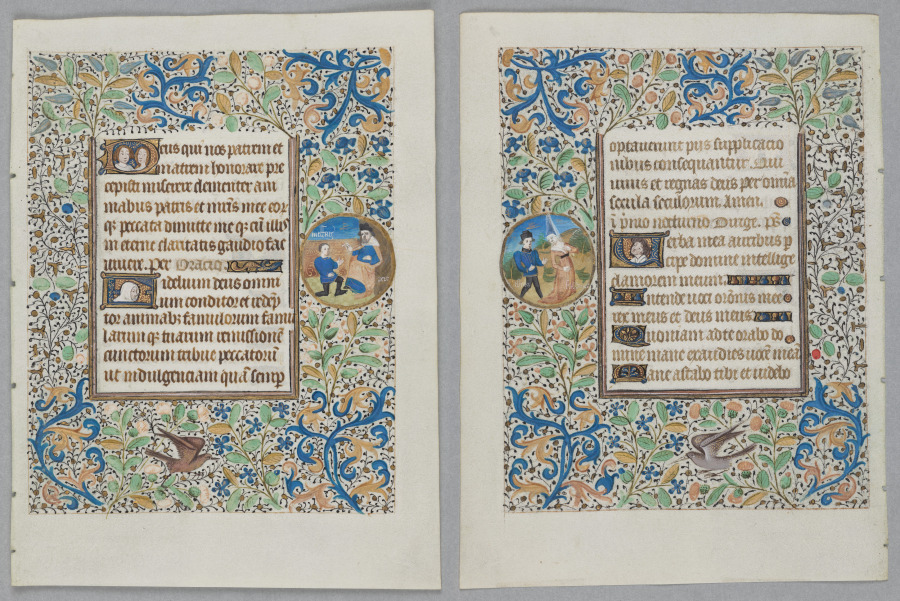 Deus qui nos patrem et
matrem honorare pre
cepisti miserere clementer ani
mabus patris et mris mee eor
q; peccata dimitte me q; cū illis
in eterne claritatis gaudio fac
vivere. Per Oracio
Fidelium deus omni
um conditor et redēp
tor animabz famulorum famu
larum q; tuarum remissionē
cunctorum tribue peccatorū
ut indulgenciam quā semp
optaverunt piis supplicacio
nibus consequantur. Qui
vivis et regnas deus per omīa
secula seculorum. Amen.
ī pmo nocturno Dirige. Ps
Verba mea auribus p
cipe domine intellige
clamorem meum.
Intende voci orōnis mee
rex meus et deus meus.
Quoniam ad te orabo do
mine mane exaudies vocē mea
Mane astabo tibi et videbo